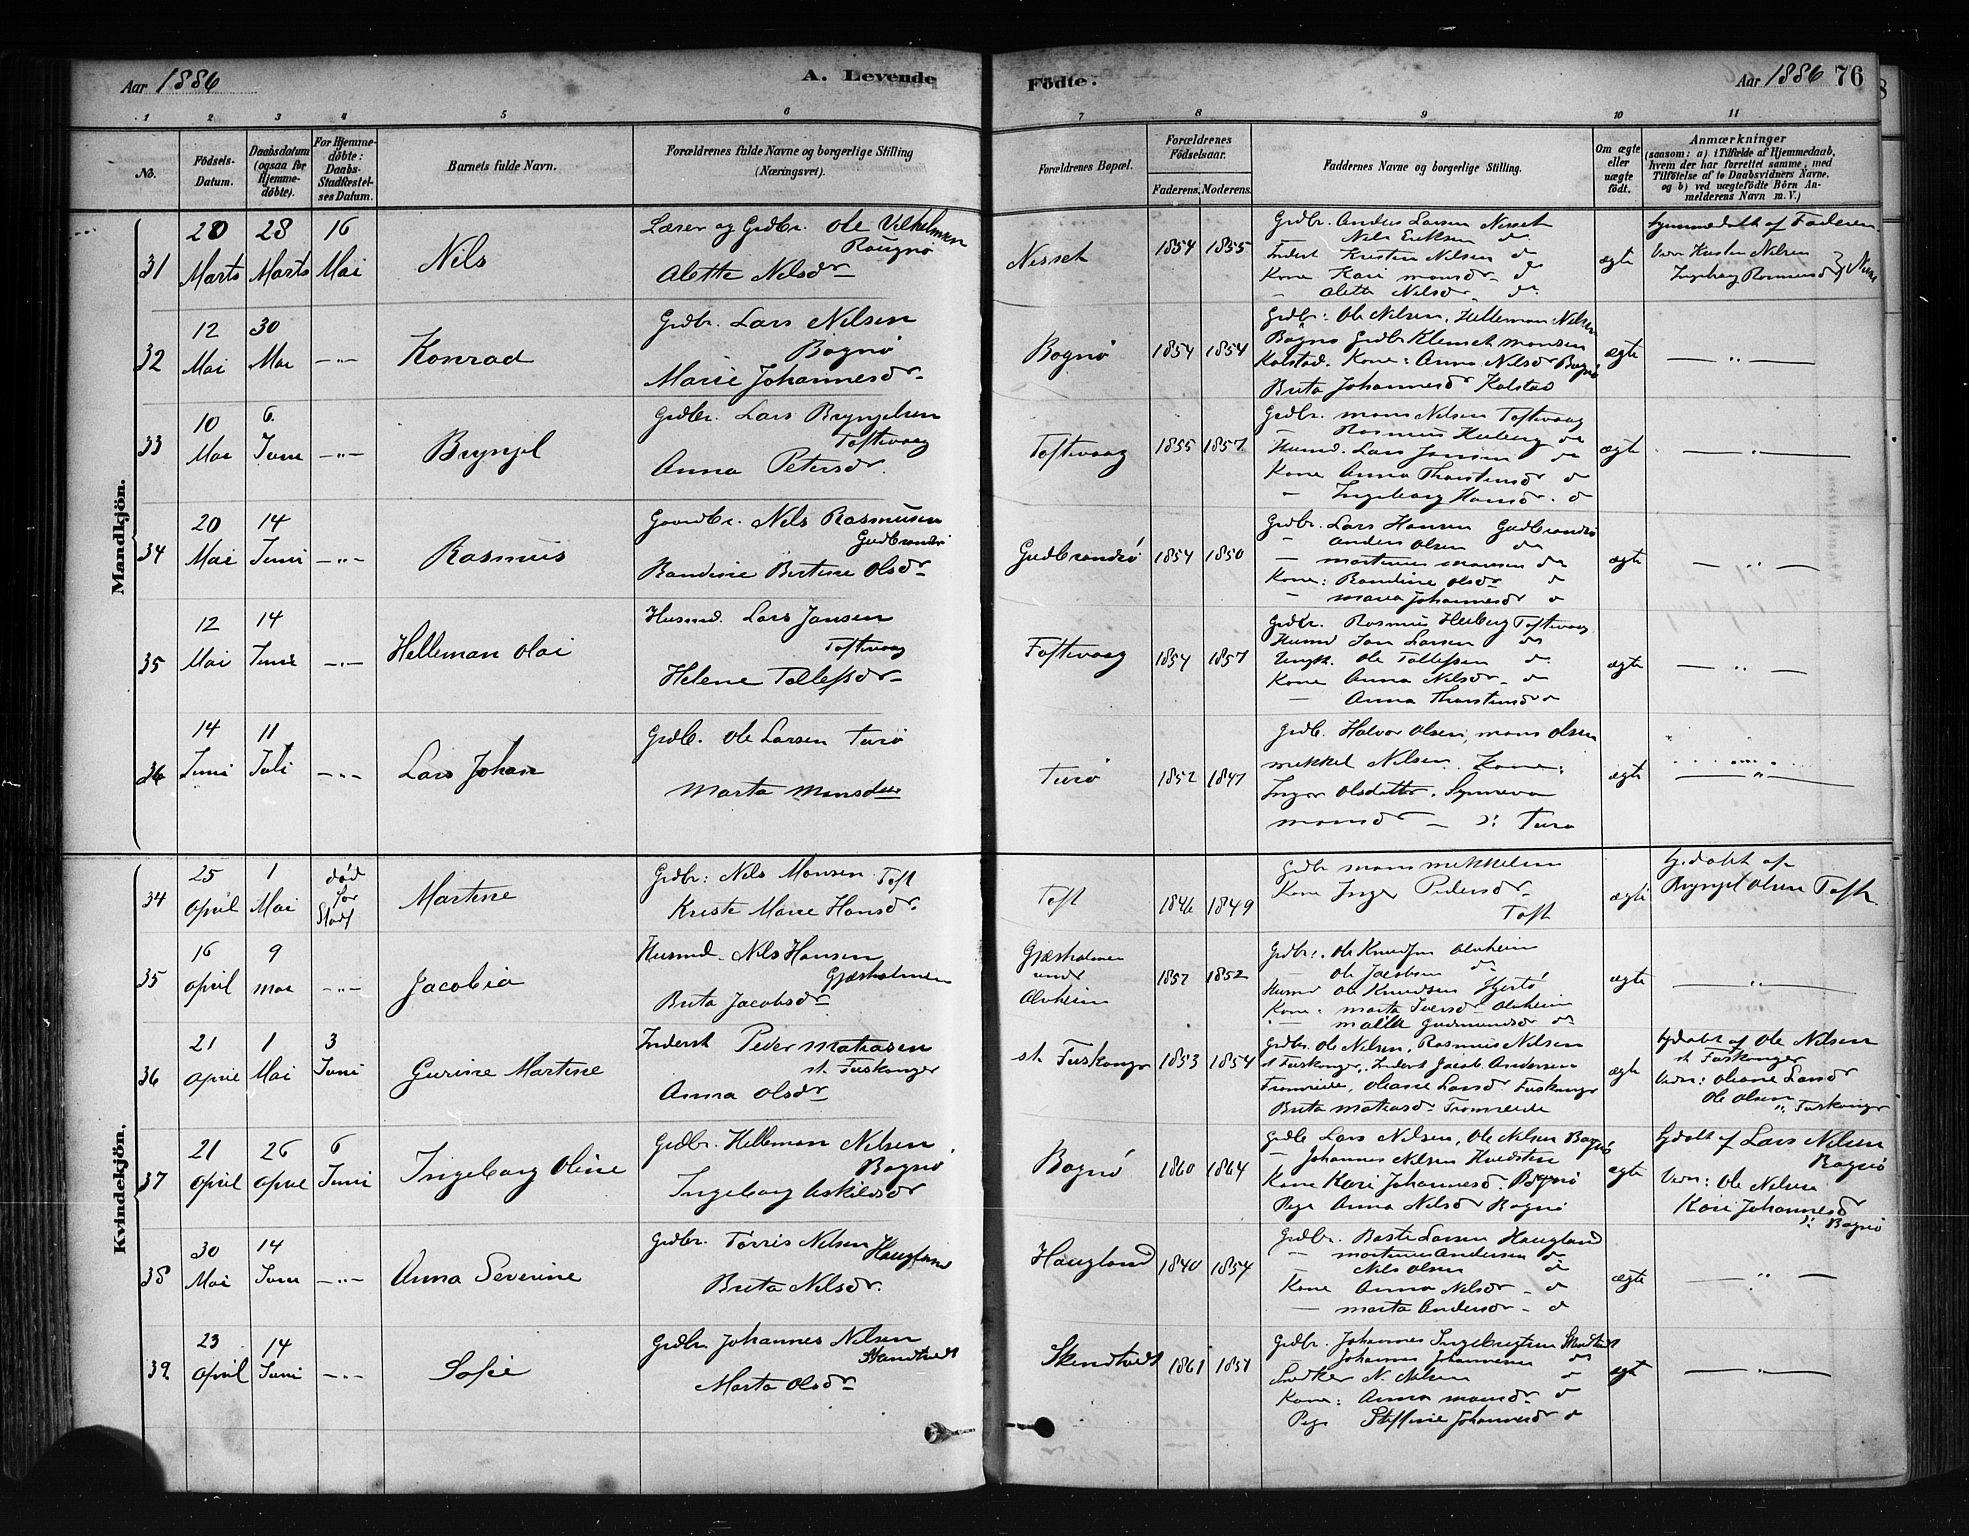 Aar 1886
A. Levende
Födte.
Aar 1886 76
1 2 3 4 5 6 7 8 9 10 11
No.
Födsels-Datum.
Daabsdatum (ogsaa for Hjemme-döbte).
For Hjemme-döbte: Daabs-Stadfæstel-ses Datum.
Barnets fulde Navn.
Forældrenes fulde Navne og borgerlige Stilling (Næringsvei).
Forældrenes Bopæl.
Forældrenes Födselsaar.
Faderens. Moderens.
Faddernes Navne og borgerlige Stilling.
Om ægte eller uægte födt.
Anmærkninger
(saasom: a) i Tilfælde af Hjemmedaab, hvem der har forrettet samme, med Tilföielse af to Daabsvidners Navne, og b) ved uægtefödte Börn An-melderens Navn m. V.)
Mandkjön.
31 20 Marts 28 Marts 16 Mai Nils
Lærer og Grdbr. Ole Vilhelmsen
Rougnø
Alette Nilsdr
Nesset 1854 1855
Grdbr. Anders Larsen Nesset
Nils Eriksen do
Inderst Kristen Nilsen do
Kone Kari Monsdr do
— Alette Nilsdr. do
ægte
Hjemmedøbt af Faderen
Vidn Kristen Nilsen
Ingeborg Rasmusd
32 12 Mai 30 Mai —"— Konrad
Grdbr. Lars Nilsen
Bognø
Marie Johannesdr.
Bognø 1854 1854
Grdbr: Ole Nilsen, Helleman Nilsen
Bognø Grdbr Klemet Monsen
Kolstad. Kone: Anna Nilsdr Bognø
Brita Johannesdr Kolstad
ægte — " —
33 10 Mai 6. Juni —"— Brynjel
Grdbr. Lars Brynjelsen
Toftevaag
Anna Petersdr.
Toftevaag 1855 1857
Grdbr. Mons Nilsen Toftevaag
— Rasmus Herberg do
Husmd. Lars Jansen do
Kone Anna Thorstensdr d
— Ingeborg Hansdr. d
ægte — " —
34 20 Mai 14 Juni —"— Rasmus
Gaardbr. Nils Rasmusen
Gudbrandsø
Randine Bertine Olsdr
Gudbrandsø 1854 1850
Grdbr. Lars Hansen Gudbrandsø
— Anders Olsen do
— Martinus Monsen do
Kone: Randine Olsdr d
— Maria Johannesdr d
ægte — " —
35 12 Mai 14 Juni —"— Helleman Olai
Husmd. Lars Jansen
Toftevaag
Helene Tollefsdr
Toftevaag 1854 1857
Grdbr. Rasmus Herberg Toftevaag
Husmd Jan Larsen do
Ungk. Ole Tollefsen do
Kone Anna Nilsdr. d
— Anna Thorstensdr d
ægte — " —
36 14 Juni 11 Juli —"— Lars Johan
Grdb. Ole Larsen Turø
Marta Monsdtr
Turø 1852 1847
Grdb. Halvor Olsen, Mons Olsen
Mekkel Nilsen. Kone:
Inger Olsdatter. Synneva
Monsdr — Turø
ægte — " —
Kvindekjön.
34 25 April 1 Mai død før Stadf Martine
Grdbr: Nils Monsen Toft
Kristi Marie Hansdr.
Toft 1846 1849
Grdbr Mons Mekkelsen
Kone Inger Pedersdr
Toft
ægte
hj.døbt af
Brynjel Olsen Toft
35 16 April 9 Mai —"— Jacobia
Husmd. Nils Hansen
Gjæsholmen
Brita Jacobsdr
Gjæsholmen
under
Alvheim
1852
Grdbr. Ole Knudsen Alvheim
— Ole Jacobsen do
Husmd Ole Knudsen Hjertø
Kone: Marta Iversdr Alvheim
— Gudmundsdr do
ægte — " —
36 21 April 1 Mai 3 Juni Gurine Martine
Inderst Peder Matiasen
st. Fuskanger
Anna Olsdr
st. Fuskanger 1853 1854
Grdbr. Ole Nilsen, Rasmus Nilsen
st Fuskanger, Inderst Jacob Andersen
Tromreide, Oliane Larsdr Fuskanger
Brita Matiasdr Tromreide
ægte
hjdøbt af Ole Nilsen
st. Fuskanger
Vidn: Oliane Larsdr
Ole Olsen
" Fuskanger
37 21 April 26 April 6 Juni Ingeborg Oline
Grdbr. Helleman Nilsen
Bognø
Ingeborg Askildsdr
Bognø 1860 1864
Grdb Lars Nilsen, Ole Nilsen Bognø
— Johannes Nilsen
Kone Kari Johannesd. Bognø
Pige Anna Nilsdr Bognø
ægte
hjdøbt af Lars Nilsen
Bognø
Vidn: Ole Nilsen
Kari Johannesd
Bognø
38 30 Mai 14 Juni —"— Anna Severine
Grdbr. Torris Nilsen Haugland
Brita Nilsdr.
Haugland 1840 1854
Grdbr. Baste Larsen Haugland
— Martinus Andersen do
— Nils Olsen do
Kone Anna Nilsdr d
— Marta Andersdr d
ægte — " —
39 23 April 14 Juni —"— Sofie
Grdbr. Johannes Nilsen
Skendtvedt
Marta Olsdr
Skendtvedt 1861 1851
Grdbr. Johannes Ingebrigtsen Skendtvedt
Johannes Johannesen do
Snedker N. Nilsen d
Kone: Anna Monsdr d
Pige Steffine Johannesdr d
ægte — " —